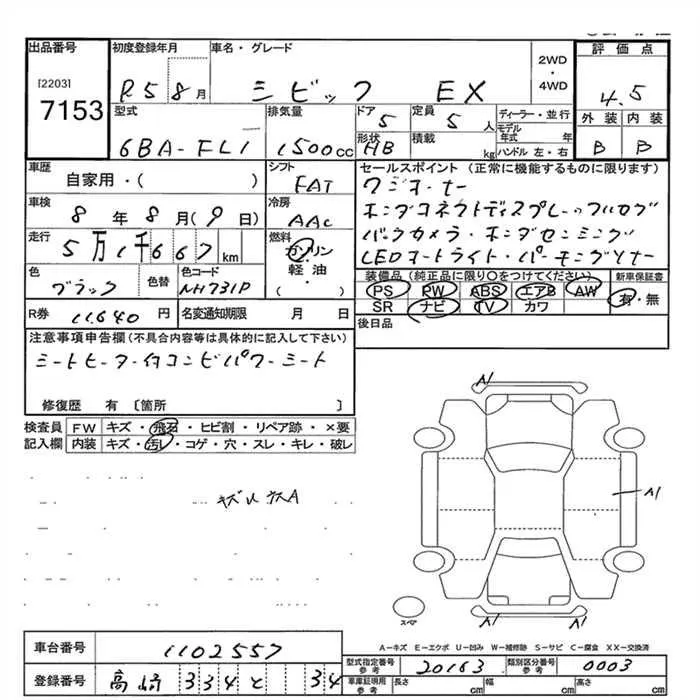 出品番号
[2203]
7153
初度登録年月
R5 8月
車名・グレード
シビック EX
2WD・4WD
評価点
4.5
外装 内装
B B
型式
6BA-FL1
排気量
1500cc
ドア
5
形状
HB
定員
5人
積載
kg
ディーラー・並行
モデル年式 年
ハンドル 左・右
車歴
自家用・( )
シフト
FAT
車検
8年8月(9日)
冷房
AAC
走行
5万1千667km
燃料
ガソリン
軽油・
( )
色
ブラック
色替
色コード
NH731P
R券
11640円
名変通知期限 月 日
セールスポイント (正常に機能するものに限ります)
ワンオーナー
ホンダコネクトディスプレー フルセグ
バックカメラ・ホンダセンシング
LEDオートライト・パーキングソナー
装備品(純正品に限り○をつけてください)
PS PW ABS エアB AW
SR ナビ TV カワ
新車保証書
有・無
後日品
注意事項申告欄(不具合内容等は具体的に記入して下さい)
シートヒーター付コンビパワーシート
修復歴 有〔箇所 〕
検査員記入欄
FW キズ・飛石・ヒビ割・リペア跡・×要
内装 キズ・汚レ・コゲ・穴・スレ・キレ・破レ
A1
A1
A1
A1
スペア
A-キズ E-エクボ U-凹み W-補修跡 S-サビ C-腐食 XX-交換済
車台番号
1102557
登録番号
高崎 334 と 34
型式指定番号 参考
20163
類別区分番号 参考
0003
車庫証明用 参考
長さ cm 幅 cm 高さ cm